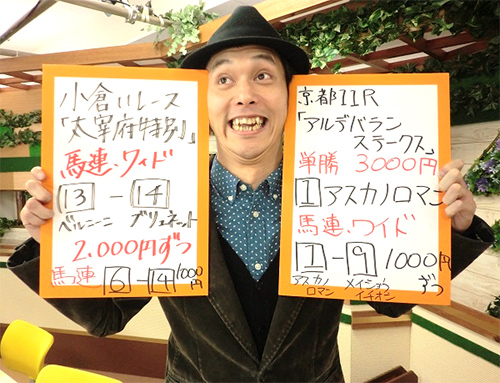 小倉11レース
「太宰府特別」
馬連・ワイド
13-14
ベルニーニ ブリュネット
2,000円ずつ
馬連 6-14 1000円
京都11R
「アルデバラン
ステークス」
単勝 3000円
1 アスカノロマン
馬連・ワイド
1-9 1000円
ずつ
アスカノ メイショウ
ロマン イチオシ